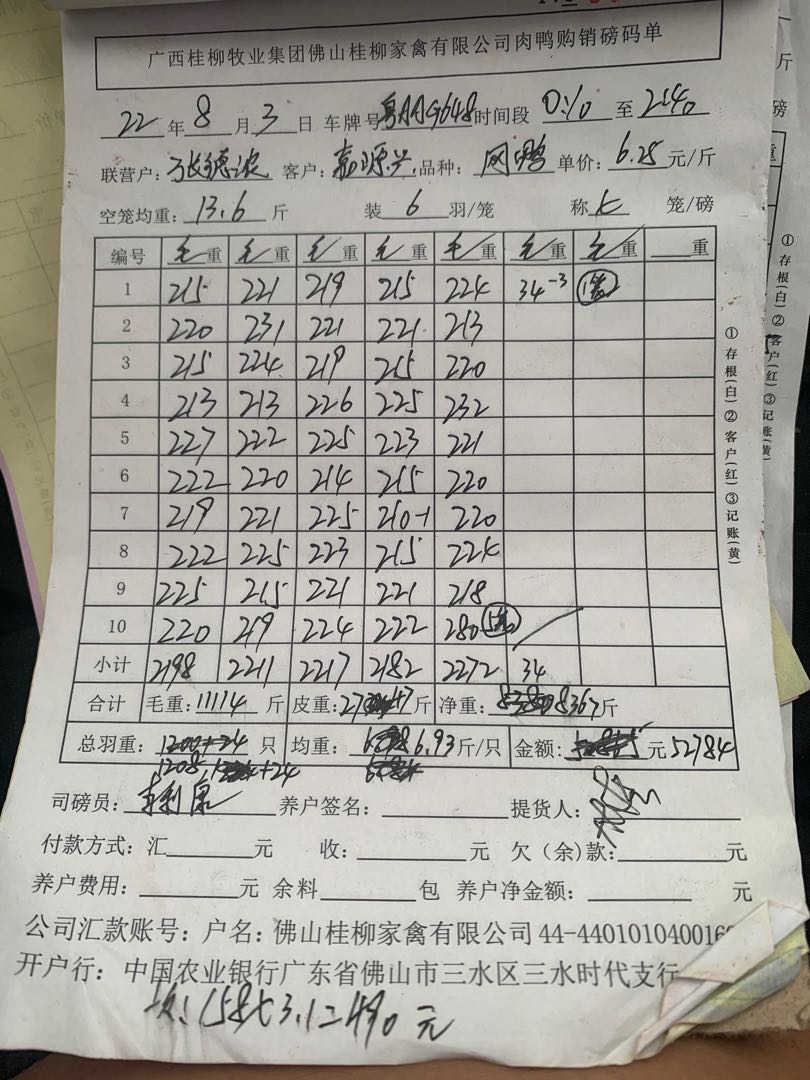 广西桂柳牧业集团佛山桂柳家禽有限公司肉鸭购销磅码单
22 年 8 月 3 日 车牌号 粤AAG648 时间段 0:10 至 2:40
联营户: 张德波 客户: 嘉源兴 品种: 网鸭 单价: 6.25 元/斤
空笼均重: 13.6 斤 装 6 羽/笼 称 笼/磅
编号 毛重 毛重 毛重 毛重 毛重 毛重 毛重 重
1 215 221 219 215 224 34-3 1笼
2 220 231 221 221 213
3 215 224 219 215 220
4 213 213 226 225 232
5 227 222 225 223 221
6 222 220 214 215 220
7 219 221 225 210-1 220
8 222 225 223 215 224
9 225 215 221 221 218
10 220 219 224 222 280 5笼
小计 2198 2211 2217 2182 2272 34
合计 毛重: 11114 斤 皮重: 斤 净重: 8367 斤
总羽重: 1200+24 只 均重: 6.93 斤/只 金额: 元 52784
1208
司磅员: 养户签名: 提货人:
付款方式: 汇 元 收: 元 欠(余)款: 元
养户费用: 元 余料 包 养户净金额: 元
公司汇款账号: 户名: 佛山桂柳家禽有限公司 44-440101040016
开户行: 中国农业银行广东省佛山市三水区三水时代支行
158×3.1=490元
①存根(白)②客户(红)③记账(黄)
①存根(白)②客户(红)③记账(黄)
斤
磅
重